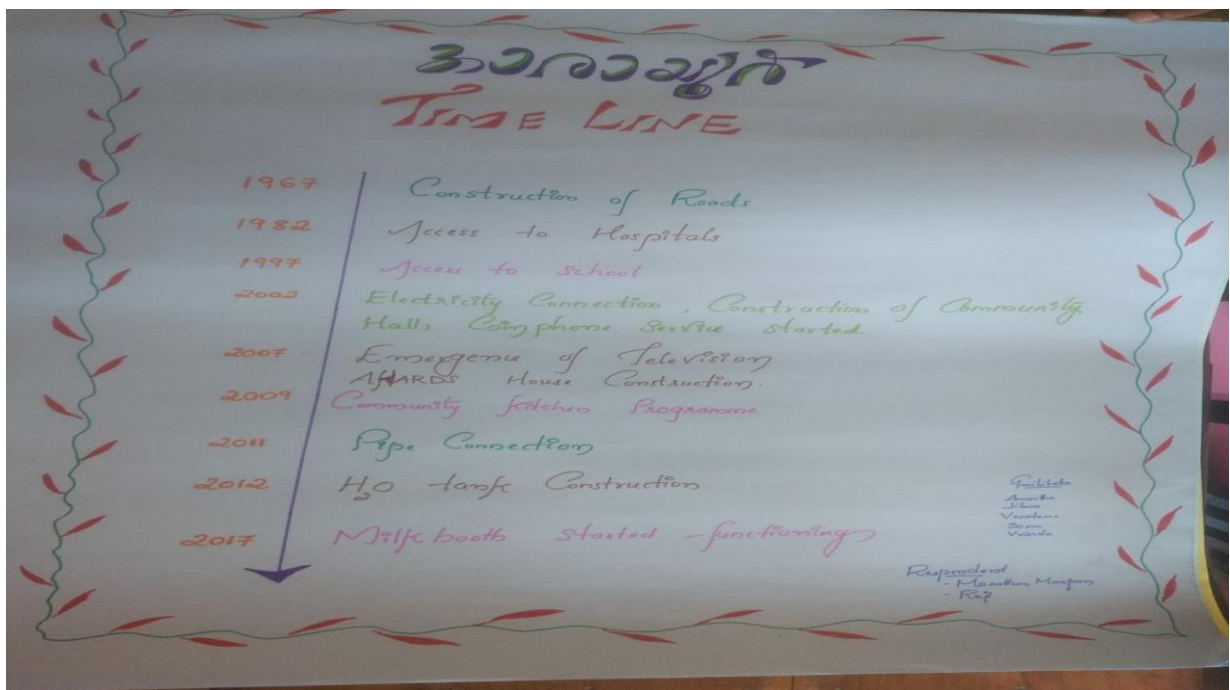 TIME LINE
1967 Construction of Roads
1982 Access to Hospitals
1997 Access to School
2002 Electricity Connection, Construction of Community
Hall, Coin phone Service started.
2007 Emergence of Television
AHARDS House Construction.
2009 Community Kitchen Programme
2011 Pipe Connection
2012 H₂O tank Construction
2017 Milk booth started functioning
Respondent
- Raji